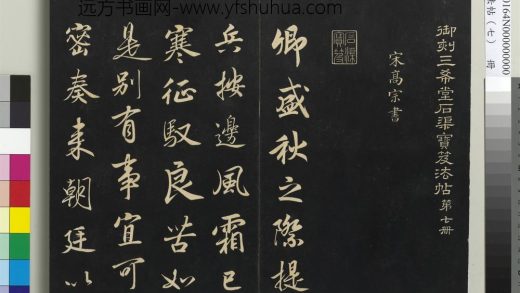 远方书画网-www.yfshuhua.com
御刻三希堂石渠寶笈法帖第七册
宋高宗書
卿盛秋之際提
兵按邊風霜已
寒征馭良苦如
是别有事宜可
密奏来朝廷以
0164N00000000000
帖（七）